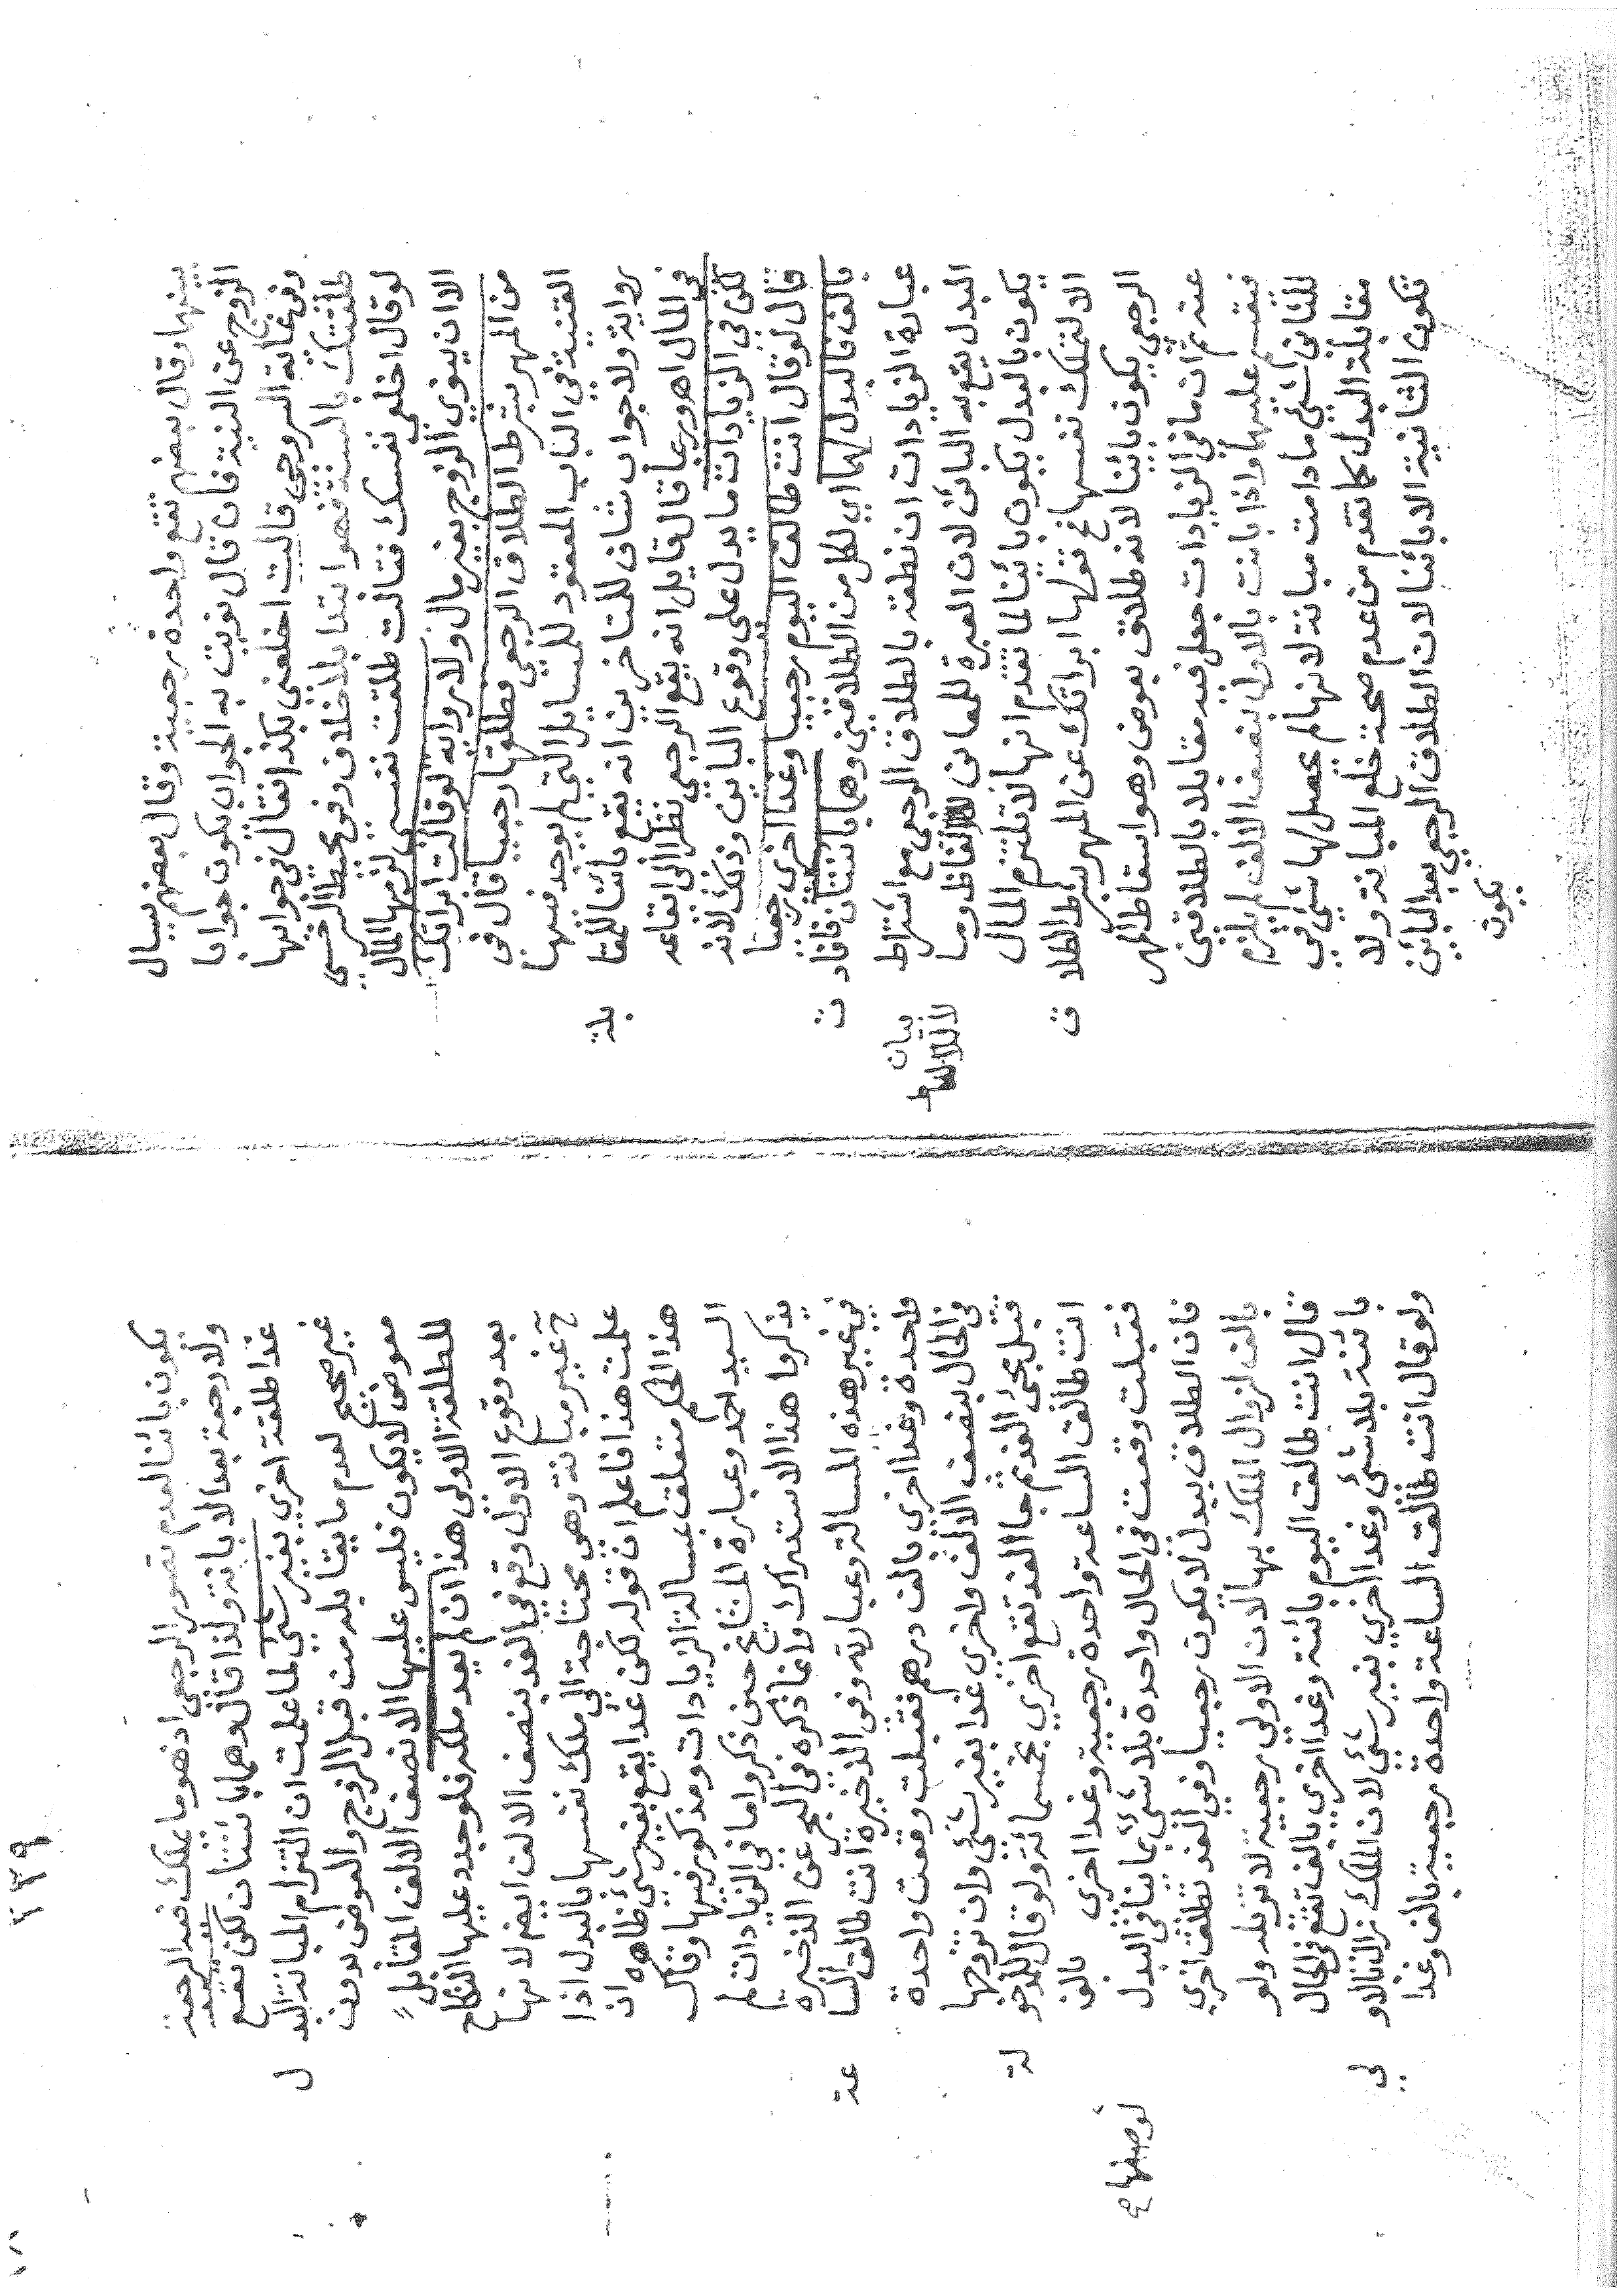 بينها وقال بعضهم تقع واحدة رجعية وقال بعضهم يسال
الزوج عن النية فان قال نويت به الجواب يكون جوابا
وفي غاية السروجي قالت اخلعني بكذا فقال في جوابها
طلقتك بالسنة فهو ابتدا بلا خلاف وفي محيط السرخسي
لو قال اخلعي نفسك فقالت طلقت نفسي لزمها المال
الا ان ينوي الزوج بغير مال ولا رواية لو قالت ابراتك
من المهر بشرط الطلاق الرجعي فطلقها رجعيا قال في
القنية في الباب المعقود للمسايل التي لم يوجد فيها
رواية ولا جواب شاف للمتاخرين انه يقع بائنا للمقا
بلة
في المال اهو رجعا قال قايل انه يقع الرجعي نظرا الى ايقاعه
لكن في الزيادات ما يدل على وقوع الباين وذلك لانه
قال لو قال انت طالق اليوم رجعيا وغدا اخرى رجعيا
بالف فالبدل لهما اي لكل من الطلاقتين وهما بائنتان فافاد
ت
عبارة الزيادات ان نطقه بالطلاق الرجعي مع اشتراط
البدل يقع به البائن لان العبرة للمعاني للالفاظ وما
بيان
لا للالفاظ
يكون بالبدل يكون بائنا لما تقدم انها لا تلتزم المال
الا لتملك نفسها ففي قولها ابراتك عن المهر بشرط الطلا
ق
الرجعي يكون بائنا لانه طلاق بعوض وهو اسقاط المهر
عنه ثم ان ما في الزيادات جعل فيه مقابلا بالطلاقتين
فيقسم عليهما واذا بانت بالاول بنصف الالف لم يلزم
للثاني شي ما دامت مبانة لانها لم يحصل لها شي في
مقابلة البدل كما تقدم من عدم صحة خلع المبانة ولا
تكون الثانية الا بائنا لان الطلاق الرجعي بعد البائن
يكون
٢٣٩
يكون بائنا لعدم تصور الرجعي اذ هو ما يملك فيه الرجعة
ولا رجعة بعد الابانة ولذا قال وهما بائنتان لكن تقع
غدا طلقة اخرى بغير شي لما علمت ان التزام المبانة البد
ل
غير صحيح لعدم ما يقابله من قبل الزوج والعوض بدون
معوض لا يكون فليس عليها الا نصف الالف المقابل
للطلقة الاولى هذا ان لم يعد ملكه فلو جدد عليها النكاح
بعد وقوع الاول وقع في الغد بنصف الالف ايضم لانها
ح غير مبانة وهي محتاجة الى ملك نفسها بالبدل اذا
علمت هذا فاعلم ان قوله لكن غدا يقع بغير شي ظاهره ان
هذا الحكم متعلق بمسالة الزيادات ومذكور فيها وقال
السيد احمد وعبارة المشايخ حين ذكروا ما في الزيادات لم
يذكروا هذا الاستدراك وانما ذكره في البحر عن الذخيرة
في غير هذه المسالة وعبارته وفي الذخيرة انت طالق السا
عة
واحدة وغدا اخرى بالف درهم فقبلت وقعت واحدة
في الحال بنصف الالف واخرى غدا بغير شي وان تزوجها
قبل مجئ الغد ثم جا الغد تقع اخرى بخمسمائة ولو قال للمدخو
لة
انت طالق الساعة واحدة رجعية وغدا اخرى بالف
فقبلت وقعت في الحال واحدة بلا شي بما ينافي البدل
لوصفها
فان الطلاق ببدل لا يكون رجعيا وفي الغد تطلق اخرى
بالف لزوال الملك بها لان الاولى رجعية لا تزيله ولو
قال انت طالق اليوم بائنة وغدا اخرى بالف تقع في الحال
بائنة بلا شي وغدا اخرى بغير شي لان الملك زال بالاو
لى
ولو قال انت طالق الساعة واحدة رجعية بالف وغدا